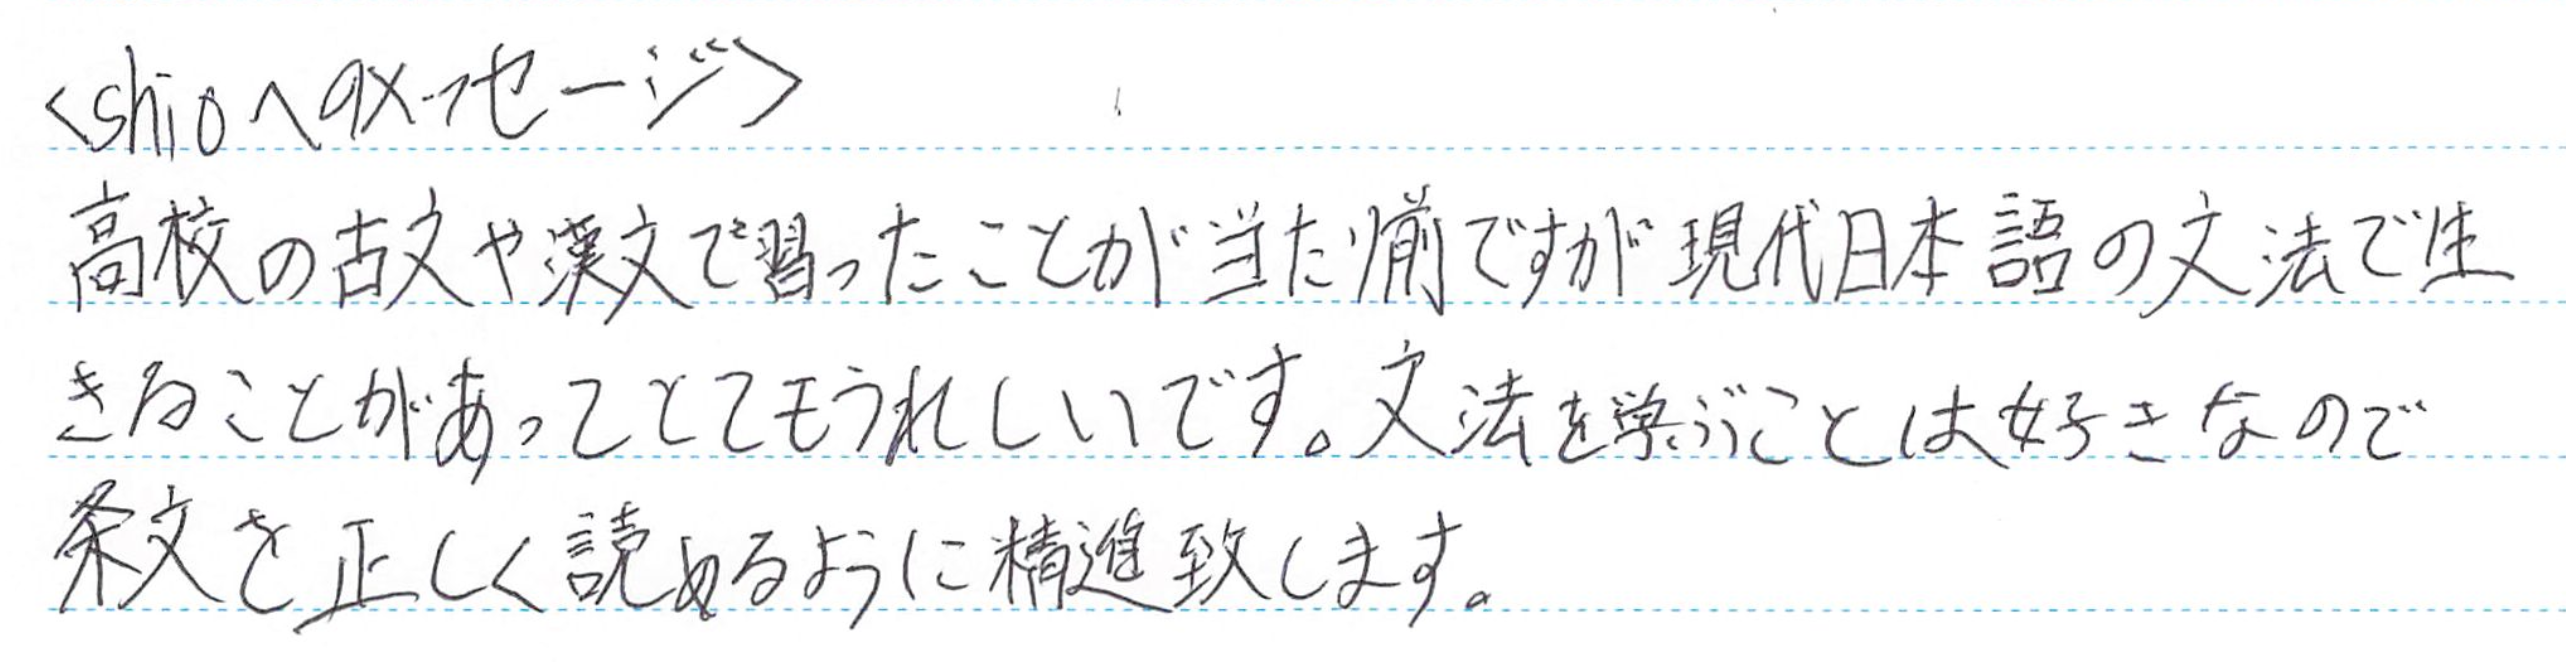 <shioへのメッセージ>
高校の古文や漢文で習ったことが当たり前ですが現代日本語の文法で生
きることがあってとてもうれしいです。文法を学ぶことは好きなので
条文を正しく読めるように精進致します。